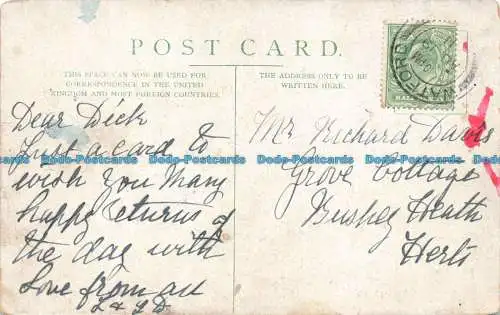 POST CARD.
THIS SPACE CAN NOW BE USED FOR
CORRESPONDENCE IN THE UNITED
KINGDOM AND MOST FOREIGN COUNTRIES.
THE ADDRESS ONLY TO BE
WRITTEN HERE.
WATFORD
Dear Dick
Just a card to
wish you Many
happy returns of
the day with
Love from all
Mr Richard Davis
Grove Cottage
Bushey Heath
Herts
Dodo-Postcards Dodo-Postcards Dodo-Postcards Dodo-Postcards Dodo-Postcards